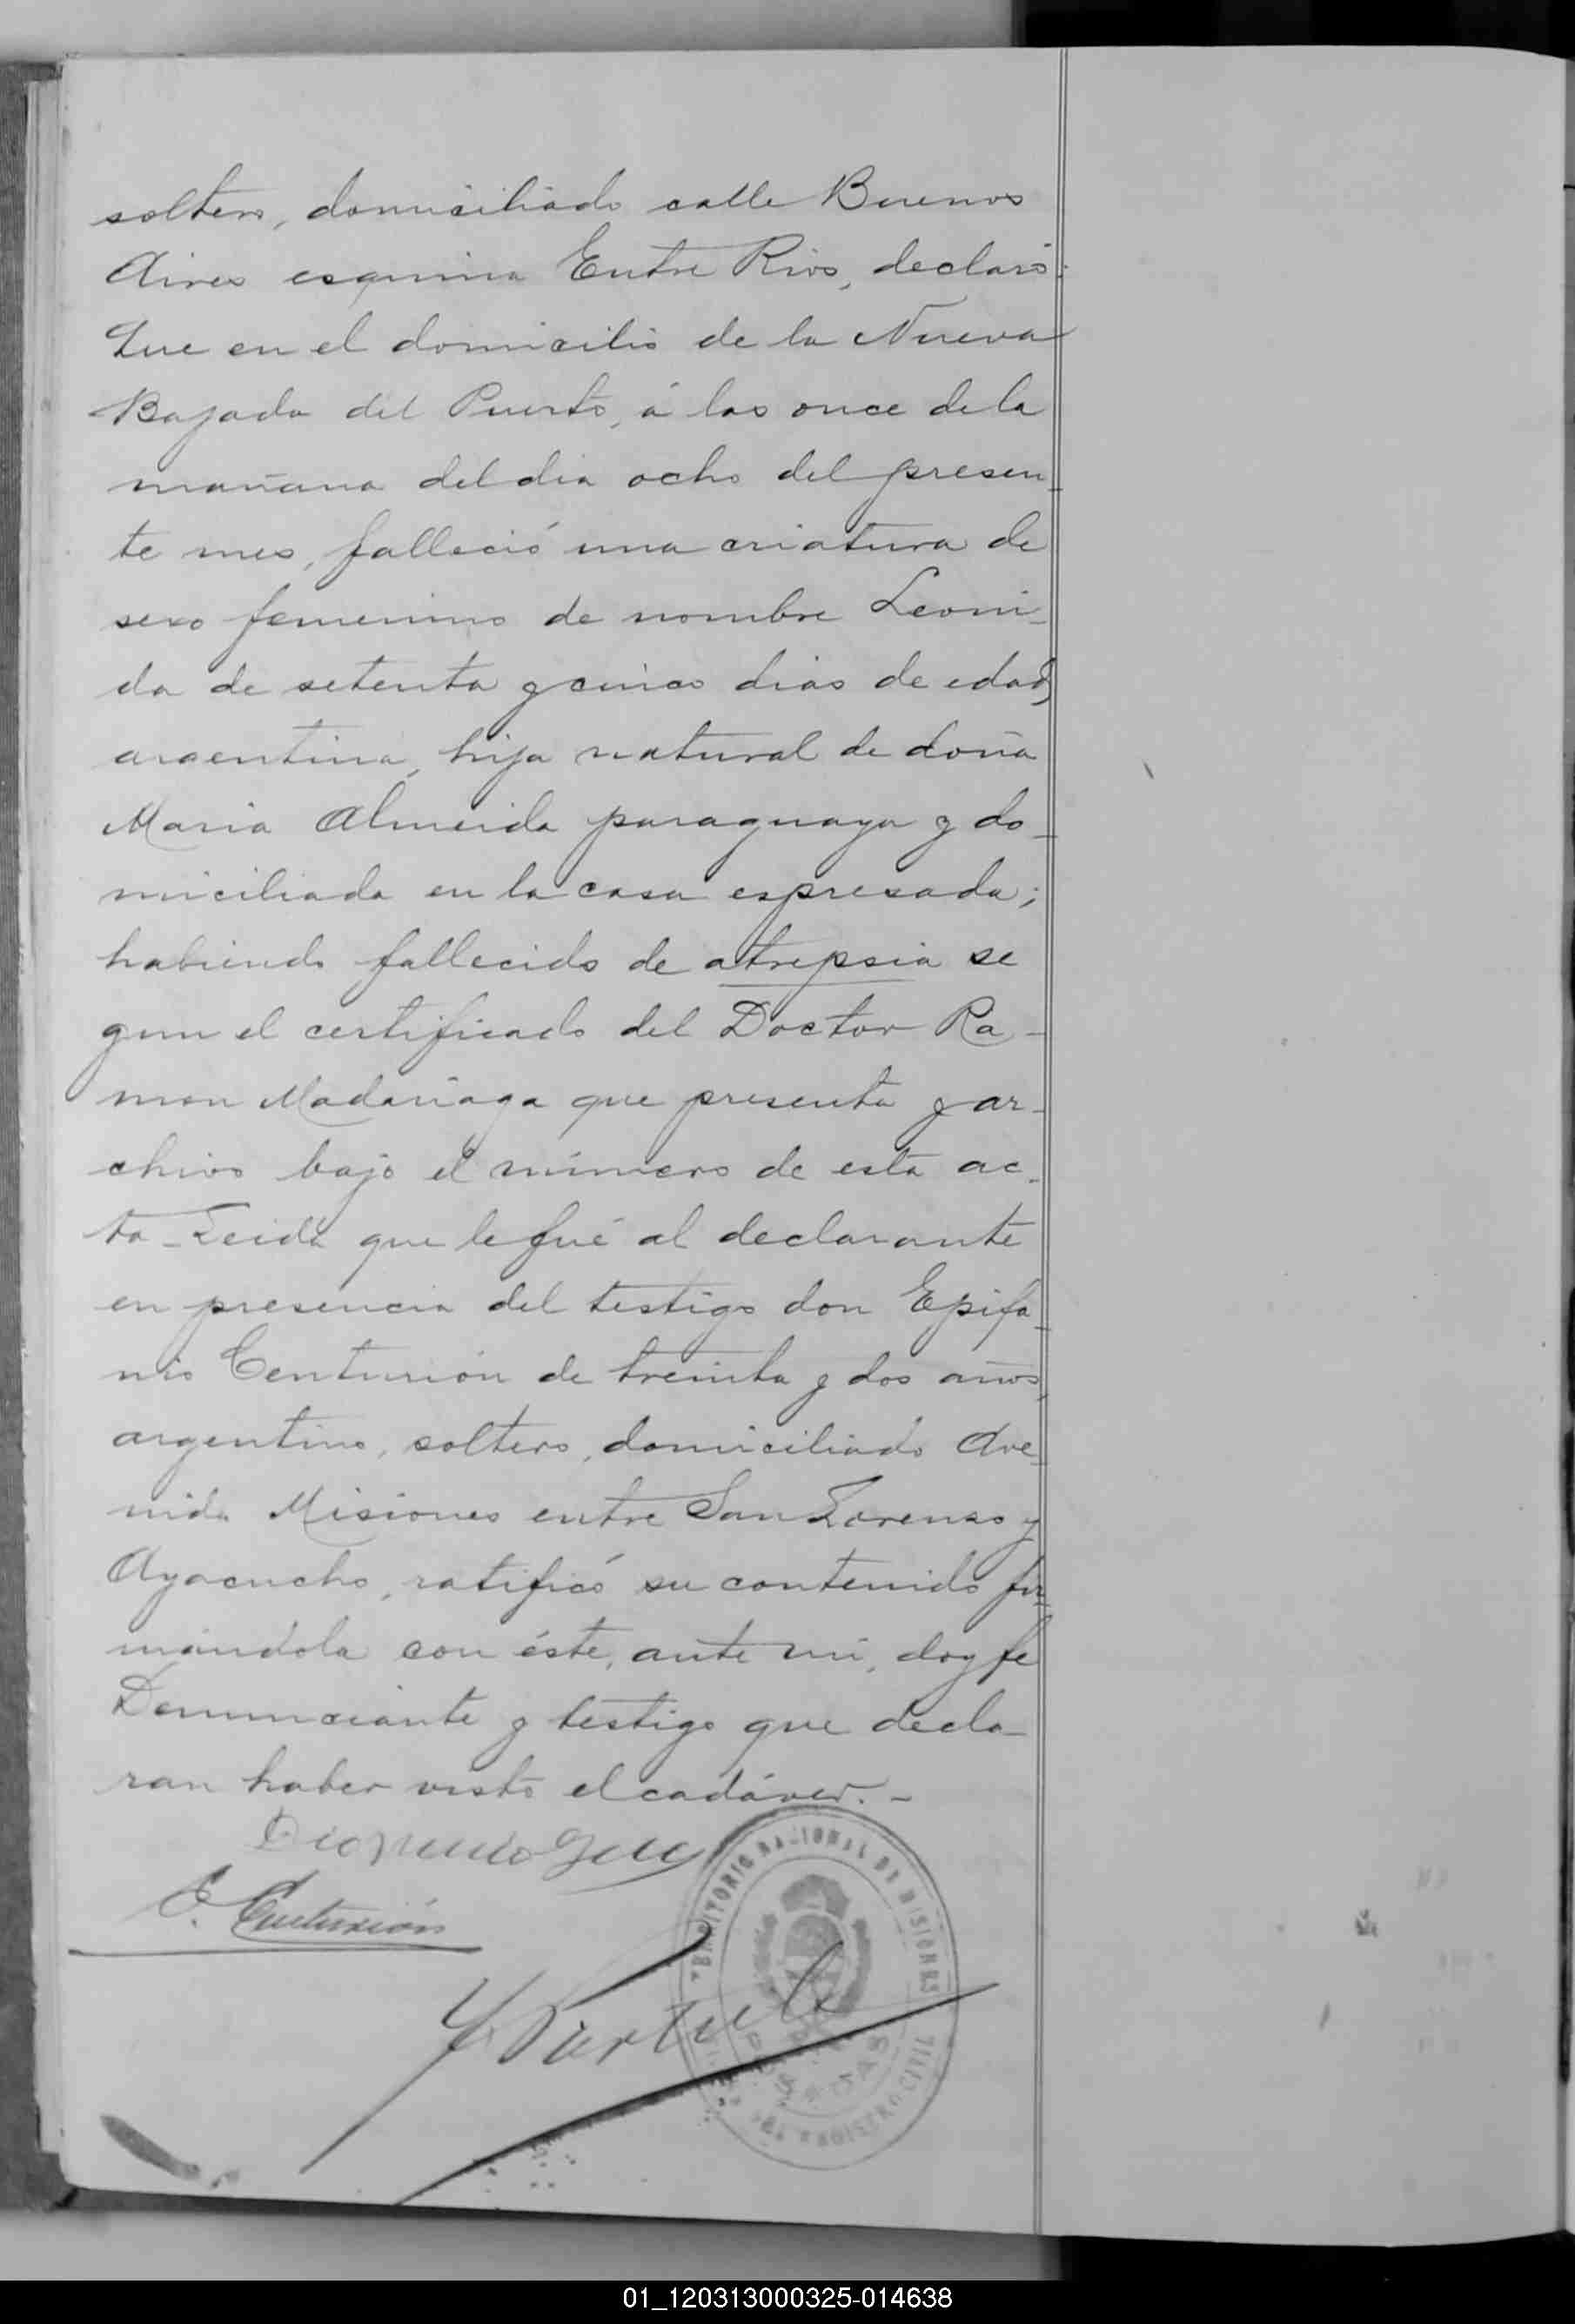 soltero, domiciliado calle Buenos
Aires esquina Entre Rios, declaró:
Que en el domicilio de la Nueva
Bajada del Puerto, á las once de la
mañana del dia ocho del presen-
te mes, falleció una criatura de
sexo femenino de nombre Leoni-
da de setenta y cinco dias de edad,
argentina, hija natural de doña
Maria Almeida paraguaya y do-
miciliada en la casa espresada;
habiendo fallecido de atrepsia se
gun el certificado del Doctor Ra-
mon Madariaga que presenta y ar-
chivo bajo el número de esta ac-
ta - Leida que le fué al declarante
en presencia del testigo don Epifa-
nio Centurión de treinta y dos años,
argentino, soltero, domiciliado Ave-
nida Misiones entre San Lorenzo y
Ayacucho, ratificó su contenido fir-
mándola con éste, ante mi, doy fe
Denunciante y testigo que decla-
ran haber visto el cadáver. -
E. Centurión
TERRITORIO NACIONAL DE MISIONES
POSADAS
REGISTRO CIVIL
01_120313000325-014638